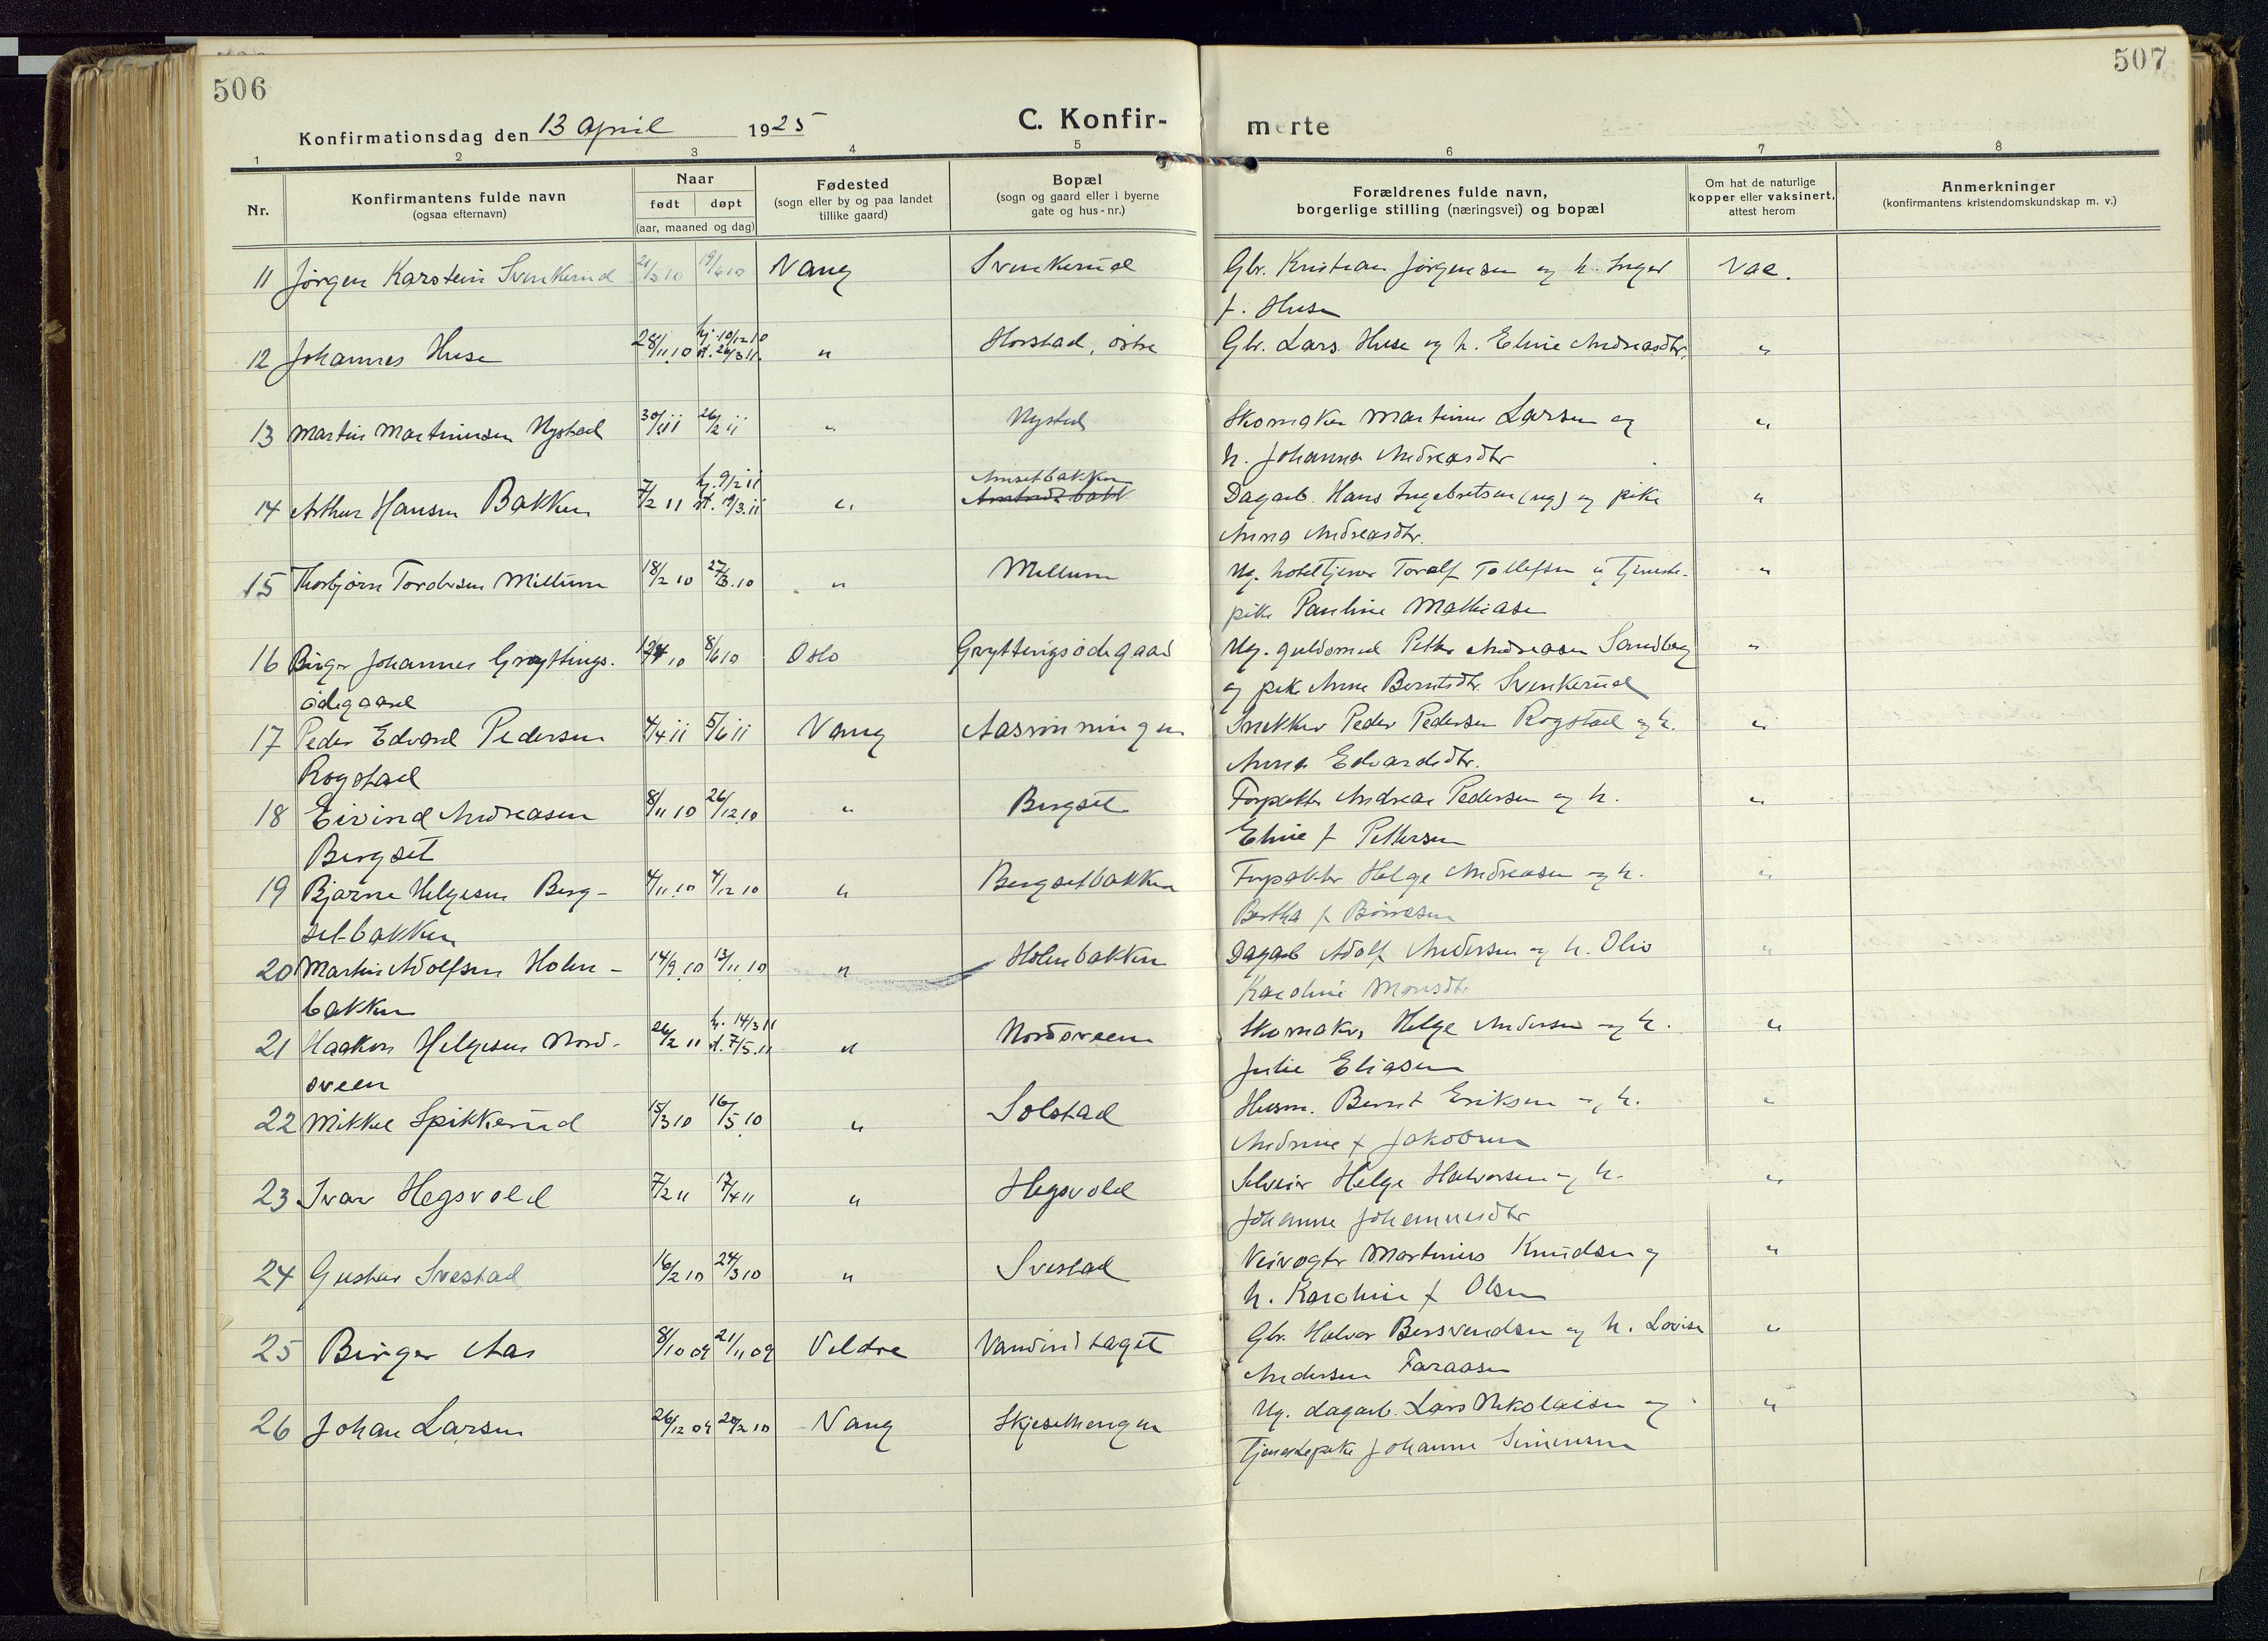 506
507
Konfirmationsdag den 13 April 1925
C. Konfir-
merte
1 2 3 4 5 6 7 8
Nr.
Konfirmantens fulde navn
(ogsaa efternavn)
Naar
født døpt
(aar, maaned og dag)
Fødested
(sogn eller by og paa landet
tillike gaard)
Bopæl
(sogn og gaard eller i byerne
gate og hus-nr.)
Forældrenes fulde navn,
borgerlige stilling (næringsvei) og bopæl
Om hat de naturlige
kopper eller vaksinert,
attest herom
Anmerkninger
(konfirmantens kristendomskundskap m. v.)
11 Jørgen Karstein Svenkerud 21/3 10 19/6 10 Vang Svenkerud Gbr. Kristian Jørgensen og h. Inger Vac.
f. Huse
12 Johannes Huse 28/11 10 hj. 10/12 10 st. 26/3 11 " Horstad, østre Gbr. Lars Huse og h. Eline Andreasdtr. "
13 Martin Martinusen Nystad 30/1 11 26/2 11 " Nystad Skomaker Martinus Larsen og "
h. Johanna Andreasdtr
14 Arthur Hansen Bakken 7/2 11 hj. 9/2 11 st. 19/3 11 " Amsetbakken Dagarb. Hans Ingebretsen (ug) og pike "
Anna Andreasdtr.
15 Thorbjørn Toralvsen Mellum 18/2 10 27/3 10 " Mellum Ug. hoteltjener Toralf Tollefsen og tjeneste- "
pike Pauline Mathiasen
16 Birger Johannes Gryttings- 12/4 10 8/6 10 Oslo Gryttingsødegaard Ug. guldsmed Petter Andreasen Sandberg "
ødegaard og pike Anne Berntsdtr. Svenkerud
17 Peder Edvard Pedersen 4/4 11 5/6 11 Vang Aasrønningen Snekker Peder Pedersen Rogstad og h. "
Rogstad Anna Edvardsdtr.
18 Eivind Andreasen 8/11 10 26/12 10 " Bergset Forpakter Andreas Pedersen og h. "
Bergset Eline f Pettersen
19 Bjarne Helgesen Berg- 4/11 10 4/12 10 " Bergsetbakken Forpakter Helge Andreasen og h. "
setbakken Bertha f Børresen
20 Martin Adolfsen Holen- 14/9 10 13/11 10 " Holenbakken Dagarb Adolf Andersen og h. Oliv "
bakken Karoline Monsdtr
21 Haakon Helgesen Nord- 26/2 11 hj. 14/3 11 st. 7/5 11 " Nordsveen Skomaker Helge Andersen og h. "
sveen Julie Eliasen
22 Mikkel Spikkerud 15/3 10 16/5 10 " Solstad Husm. Bernt Eriksen og h. "
Andrine f Jakobsen
23 Ivar Hegsvold 7/2 11 17/4 11 " Hegsvold Selveier Helge Halvorsen og h. "
Johanne Johannesdtr
24 Gustav Svestad 16/2 10 24/3 10 " Svestad Veivogter Martinius Knudsen og "
h. Karoline f Olsen
25 Birger Aas 8/10 09 21/11 09 Veldre Vandindtaget Gbr. Halvor Bersvendsen og h. Lovise "
Andersen Faraasen
26 Johan Larsen 26/12 09 20/2 10 Vang Skjesethengen Ug. dagarb. Lars Nikolaisen og "
tjenestepike Johanne Simensen